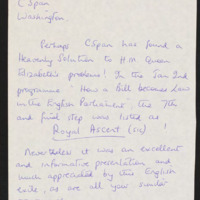 C Span
Washington
Perhaps CSpan has found a
Heavenly Solution to H.M. Queen
Elizabeth's problems! In the Jan 2nd
programme "How a Bill becomes Law
in the English Parliament" the 7th
and final step was listed as
Royal Ascent (sic) !
Nevertheless it was an excellent
and informative presentation and
much appreciated by this English
exile, as are all your similar